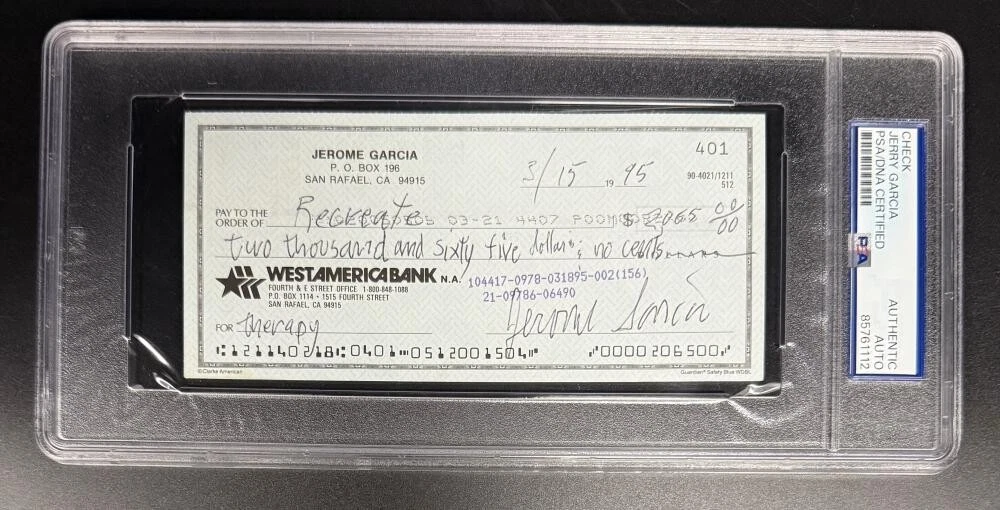 JEROME GARCIA
P. O. BOX 196
SAN RAFAEL, CA 94915
401
3/15 19 95
90-4021/1211
512
PAY TO THE
ORDER OF Recreate 03-21 4407 $ 2065 00/00
two thousand and sixty five dollars; no cents
WESTAMERICABANK N.A.
FOURTH & E STREET OFFICE 1-800-848-1088
P.O. BOX 1114 • 1515 FOURTH STREET
SAN RAFAEL, CA 94915
104417-0978-031895-002(156)
21-09786-06490
FOR therapy Jerome Garcia
⑆121140218⑆0401⑈0512001504⑈ ⑈0000206500⑈
© Clarke American
Guardian® Safety Blue WDBL
CHECK
JERRY GARCIA
PSA/DNA CERTIFIED
PSA
AUTHENTIC
AUTO
85761112